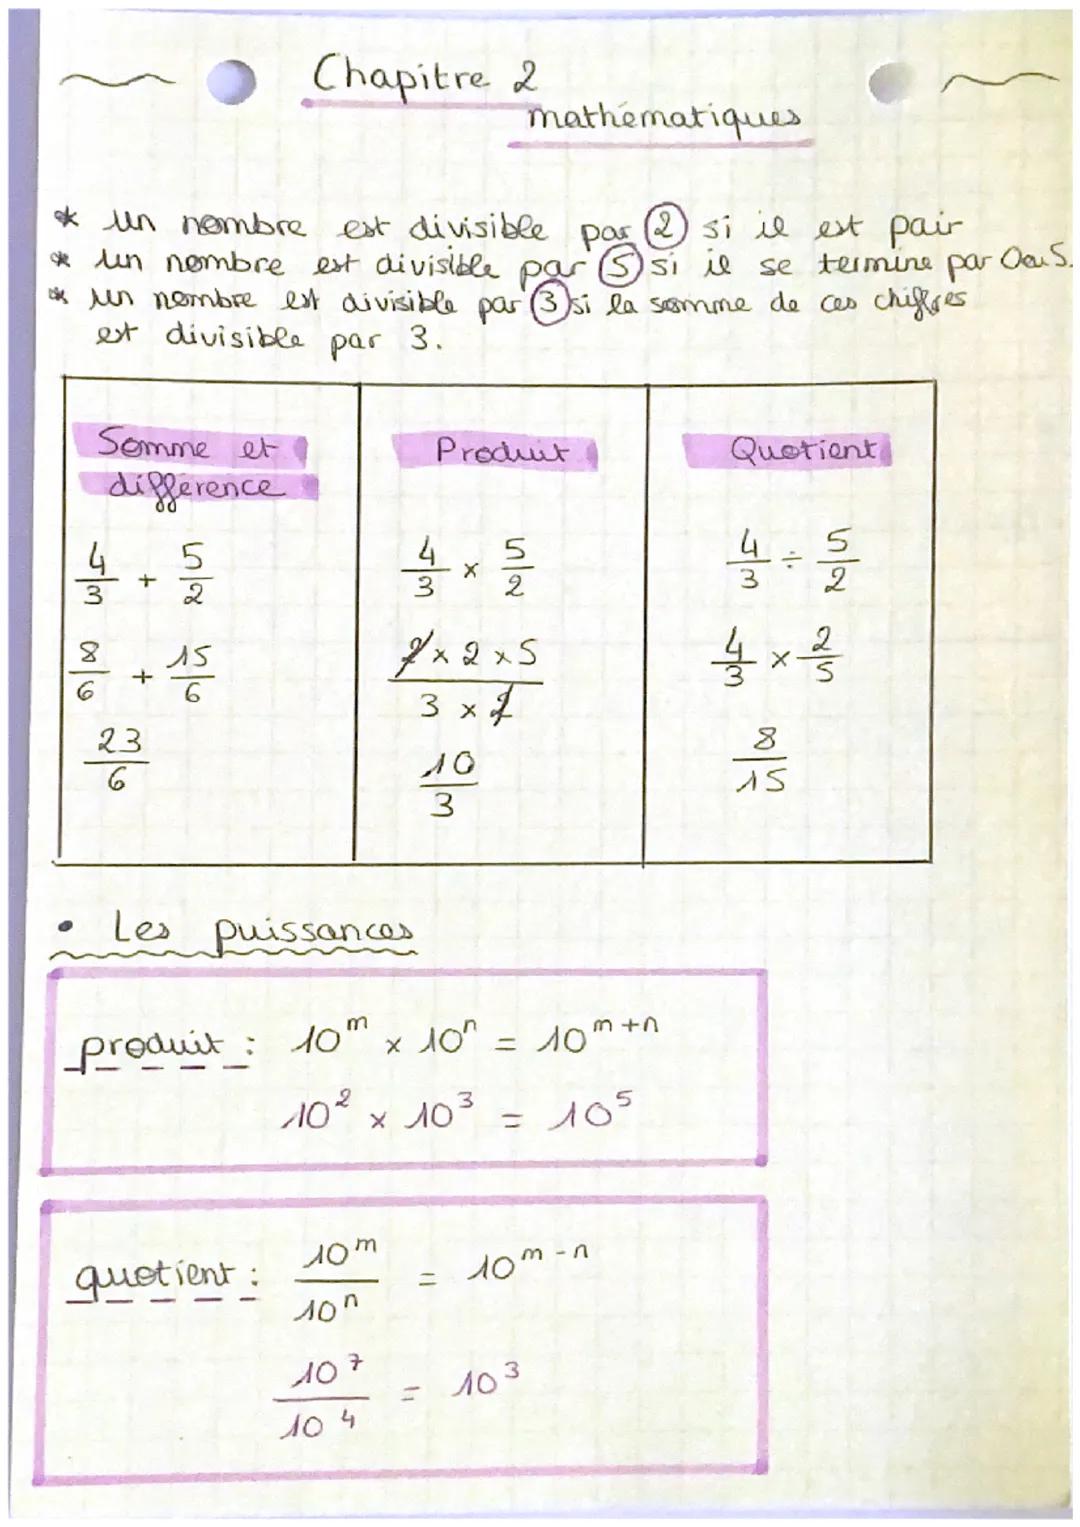 Chapitre 2
mathématiques
* un nombre est divisible par 2 si il est pair
* un nombre est divisible par 5 si il se termine par 0 ou 5.
* un nombre est divisible par 3 si la somme de ces chiffres
est divisible par 3.
Somme et
différence
4/3 + 5/2
8/6 + 15/6
23/6
Produit
4/3 × 5/2
2 × 2 × 5
3 × 2
10/3
Quotient
4/3 ÷ 5/2
4/3 × 2/5
8/15
• Les puissances
produit : 10^m × 10^n = 10^m+n
10² × 10³ = 10⁵
quotient : 10^m/10^n = 10^m-n
10⁷/10⁴ = 10³